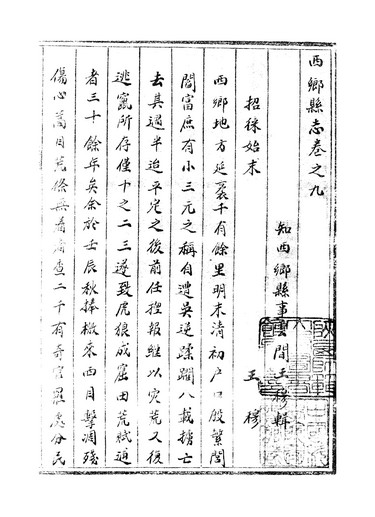 西鄉縣志卷之九
知西鄉縣事雲間王穆輯
招徠始末 王穆
西鄉地方延袤千有餘里明末清初戶口殷繁閭
閻富庶有小三元之稱自遭吳逆蹂躪八載擄亡
去其過半迨平定之後前任捏報繼以灾荒又復
逃竄所存僅十之二三遂致虎狼成窟田荒賦逋
者三十餘年矣余於壬辰秋捧檄來西目擊凋殘
傷心蒿目荒條無着者查二千有奇官罹處分民